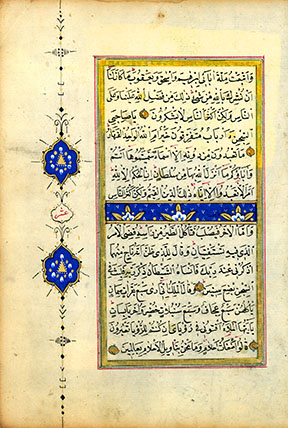 واتبعت ملة آبائي إبرهيم وإسحق ويعقوب ما كان لنا
أن نشرك بالله من شيء ذلك من فضل الله علينا وعلى
الناس ولكن أكثر الناس لا يشكرون يا صاحبي
السجن ءأرباب متفرقون خير أم الله الواحد القهار
ما تعبدون من دونه إلا أسماء سميتموها أنتم
وآباؤكم ما أنزل الله بها من سلطان إن الحكم إلا لله
أمر ألا تعبدوا إلا إياه ذلك الدين القيم ولكن أكثر الناس
وأما الآخر فيصلب فتأكل الطير من رأسه قضي الأمر
الذي فيه تستفتيان وقال للذي ظن أنه ناج منهما
اذكرني عند ربك فأنساه الشيطان ذكر ربه فلبث في
السجن بضع سنين وقال الملك إني أرى سبع بقرات سمان
يأكلهن سبع عجاف وسبع سنبلات خضر وأخر يابسات
يا أيها الملأ أفتوني في رؤياي إن كنتم للرؤيا تعبرون
قالوا أضغاث أحلام وما نحن بتأويل الأحلام بعالمين
عشر